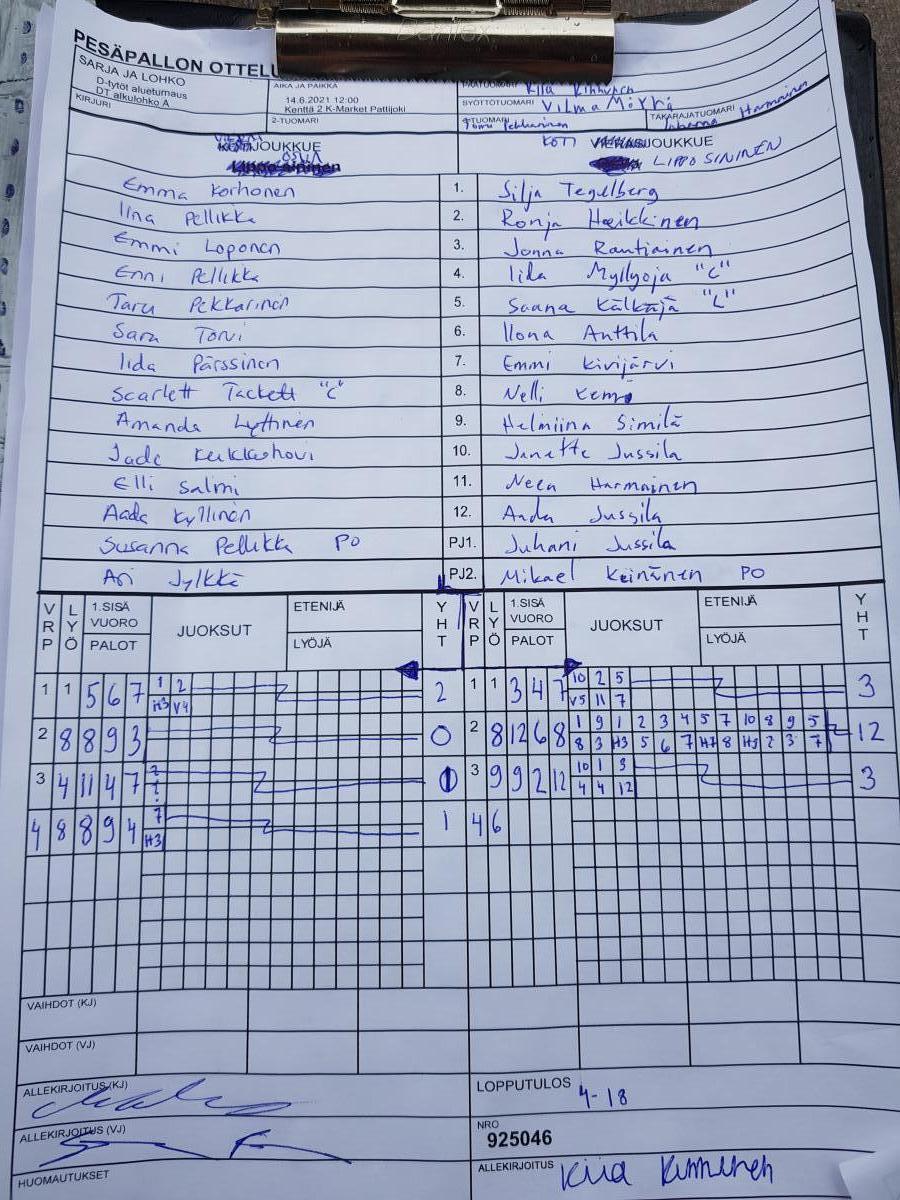 PESÄPALLON OTTELU
SARJA JA LOHKO
D-tytöt alueturnaus
DT alkulohko A
KIRJURI
AIKA JA PAIKKA
14.6.2021 12:00
Kenttä 2 K-Market Pattijoki
2-TUOMARI
SYÖTTÖTUOMARI Vilma
TAKARAJATUOMARI
JOUKKUE
KOTI JOUKKUE
LIPPO SININEN
Emma Korhonen 1. Silja Tegelberg
Iina Pellikka 2. Ronja Heikkinen
Emmi Loponen 3. Jonna Rantiainen
Enni Pellikka 4. Iida Myllyoja "C"
Taru Pekkarinen 5. Saana Kälkäjä "L"
Sara Torvi 6. Ilona Anttila
Iida Pärssinen 7. Emmi Kivijärvi
Scarlett Tackett "C" 8. Nelli Kemi
Amanda Lyttinen 9. Helmiina Similä
Jade 10. Janette Jussila
Elli Salmi 11. Neea Harmainen
Aada Kyllinen 12. Aada Jussila
Susanna Pellikka PO PJ1. Juhani Jussila
Ari Jylkkä PJ2. Mikael Keinänen PO
VRP LYÖ 1.SISÄ VUORO PALOT JUOKSUT ETENIJÄ LYÖJÄ YHT VRP LYÖ 1.SISÄ VUORO PALOT JUOKSUT ETENIJÄ LYÖJÄ YHT
1 1 5 6 7 1 2 2 1 1 3 4 7 10 2 5 3
H3 V4 V5 11 7
2 8 8 9 3 0 2 8 12 6 8 1 9 1 2 3 4 5 7 10 8 9 5 12
8 3 H3 5 6 7 H7 8 H3 2 3 7
3 4 11 4 7 1 3 9 9 2 12 10 1 3 3
4 4 12
4 8 8 9 4 7 1 4 6
H3
VAIHDOT (KJ)
VAIHDOT (VJ)
ALLEKIRJOITUS (KJ)
LOPPUTULOS
4-18
ALLEKIRJOITUS (VJ)
NRO
925046
HUOMAUTUKSET
ALLEKIRJOITUS Kiia Kinnunen